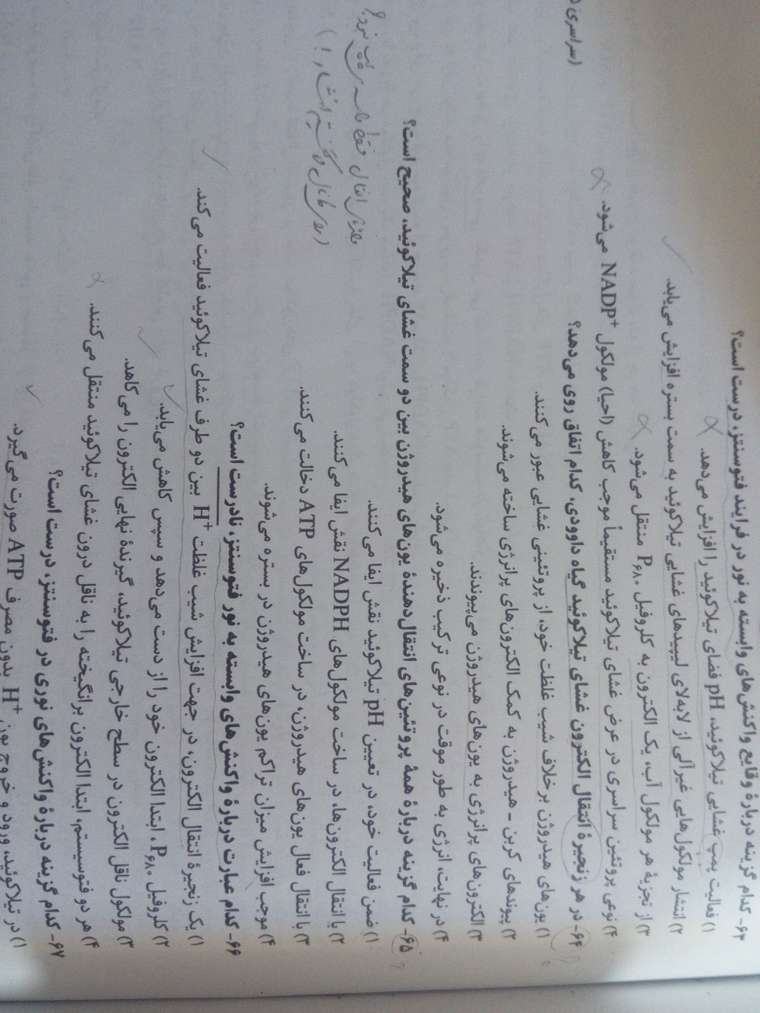 ۶۳- کدام گزینه دربارهٔ وقایع واکنش‌های وابسته به نور در فرایند فتوسنتز، درست است؟
۱) فعالیت پمپ غشایی تیلاکوئید، pH فضای تیلاکوئید را افزایش می‌دهد.
۲) انتشار مولکول‌هایی غیرآلی از لابه‌لای لیپیدهای غشایی تیلاکوئید به سمت بستره افزایش می‌یابد.
۳) از تجزیهٔ هر مولکول آب، یک الکترون به کلروفیل P۶۸۰ منتقل می‌شود.
۴) نوعی پروتئین سراسری در عرض غشای تیلاکوئید مستقیماً موجب کاهش (احیا) مولکول NADP⁺ می‌شود.
۶۴- در هر زنجیرهٔ انتقال الکترون غشای تیلاکوئید گیاه داوودی، کدام اتفاق روی می‌دهد؟
(سراسری
۱) یون‌های هیدروژن برخلاف شیب غلظت خود، از پروتئینی غشایی عبور می‌کنند.
۲) پیوندهای کربن - هیدروژن به کمک الکترون‌های پرانرژی ساخته می‌شوند.
۳) الکترون‌های پرانرژی به یون‌های هیدروژن می‌پیوندند.
۴) در نهایت، انرژی به طور موقت در نوعی ترکیب ذخیره می‌شود.
۶۵- کدام گزینه دربارهٔ همهٔ پروتئین‌های انتقال‌دهندهٔ یون‌های هیدروژن بین دو سمت غشای تیلاکوئید، صحیح است؟
۱) ضمن فعالیت خود، در تعیین pH تیلاکوئید نقش ایفا می‌کنند.
۲) با انتقال الکترون‌ها، در ساخت مولکول‌های NADPH نقش ایفا می‌کنند.
۳) با انتقال فعال یون‌های هیدروژن، در ساخت مولکول‌های ATP دخالت می‌کنند.
۴) موجب افزایش میزان تراکم یون‌های هیدروژن در بستره می‌شوند.
۶۶- کدام عبارت دربارهٔ واکنش‌های وابسته به نور فتوسنتز، نادرست است؟
۱) یک زنجیرهٔ انتقال الکترون، در جهت افزایش شیب غلظت H⁺ بین دو طرف غشای تیلاکوئید فعالیت می‌کند.
۲) کلروفیل P۶۸۰، ابتدا الکترون خود را از دست می‌دهد و سپس کاهش می‌یابد.
۳) مولکول ناقل الکترون در سطح خارجی تیلاکوئید، گیرندهٔ نهایی الکترون را می‌کاهد.
۴) هر دو فتوسیستم، ابتدا الکترون برانگیخته را به ناقل درون غشای تیلاکوئید منتقل می‌کنند.
۶۷- کدام گزینه دربارهٔ واکنش‌های نوری در فتوسنتز، درست است؟
۱) در تیلاکوئید، ورود و خروج یون H⁺ بدون مصرف ATP صورت می‌گیرد.